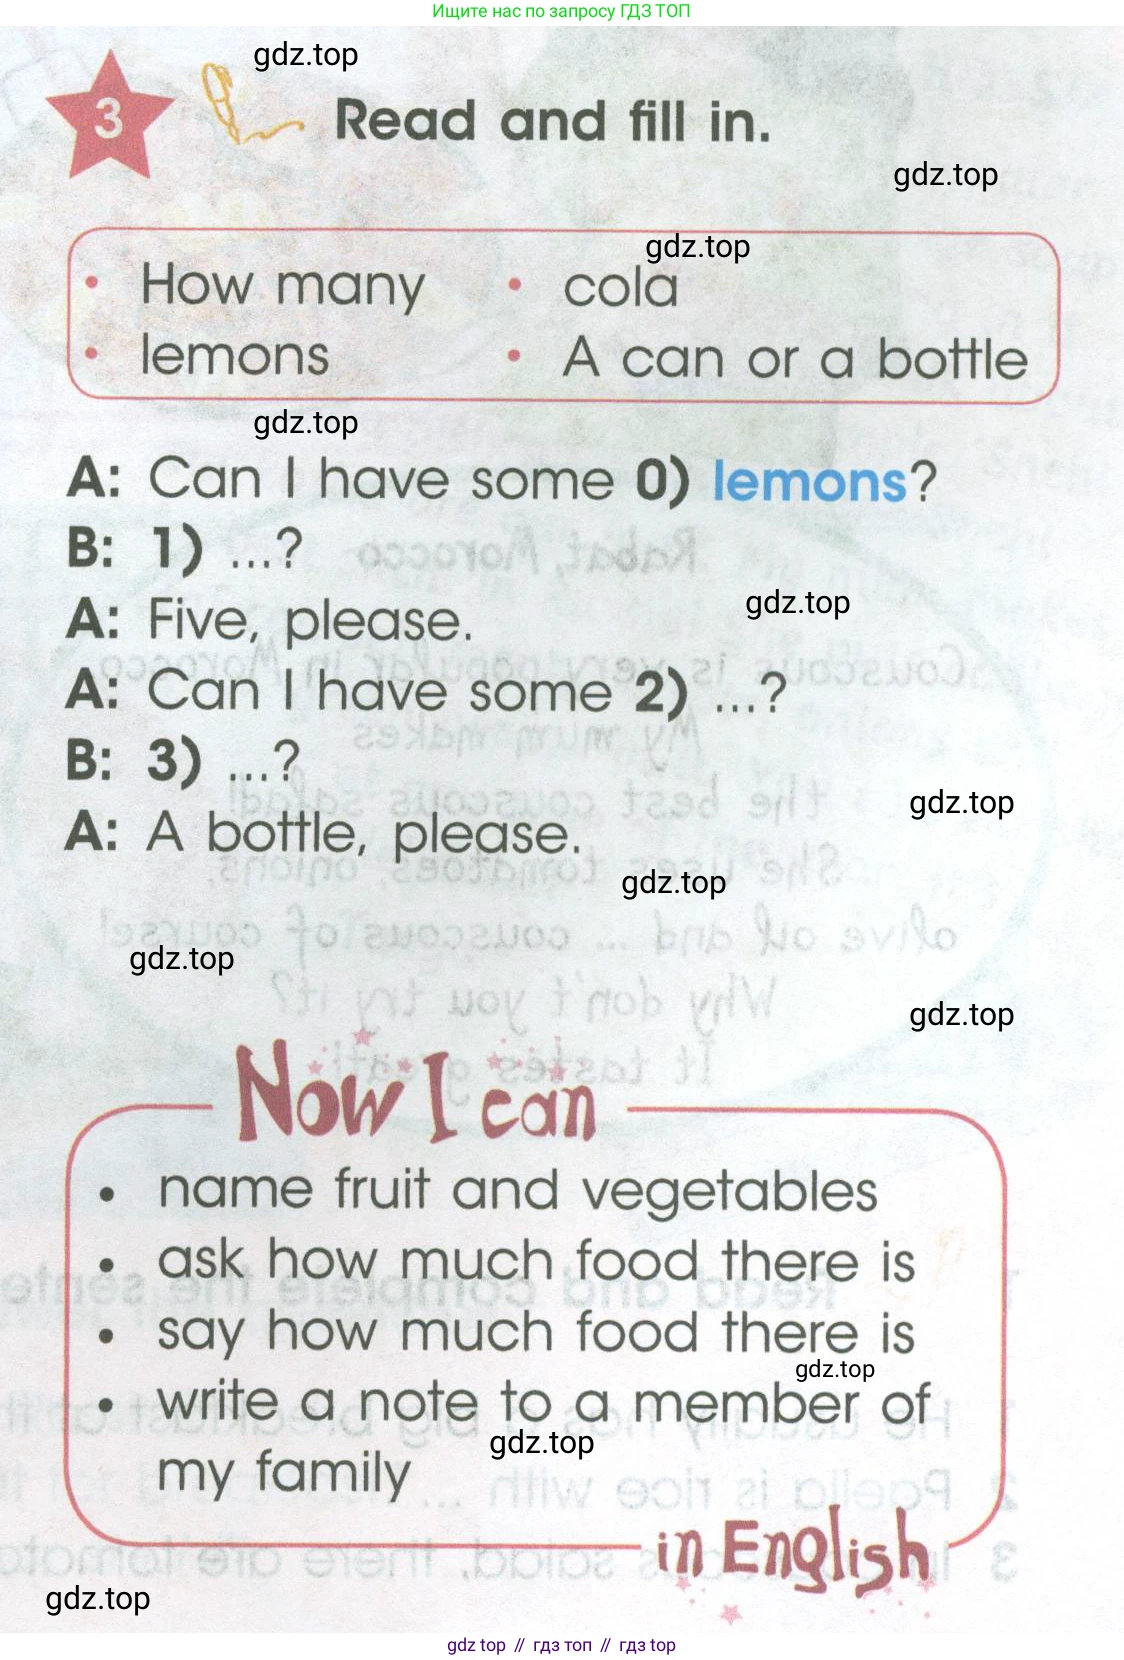 Ищите нас по запросу ГДЗ ТОП
gdz.top
3 Read and fill in.
gdz.top
gdz.top
• How many • cola
• lemons • A can or a bottle
gdz.top
A: Can I have some 0) lemons?
B: 1) ...?
gdz.top
A: Five, please.
A: Can I have some 2) ...?
B: 3) ...?
gdz.top
A: A bottle, please.
gdz.top
gdz.top
gdz.top
Now I can
• name fruit and vegetables
• ask how much food there is
• say how much food there is
gdz.top
• write a note to a member of
gdz.top
my family
in English
gdz.top
gdz top // гдз топ // гдз top